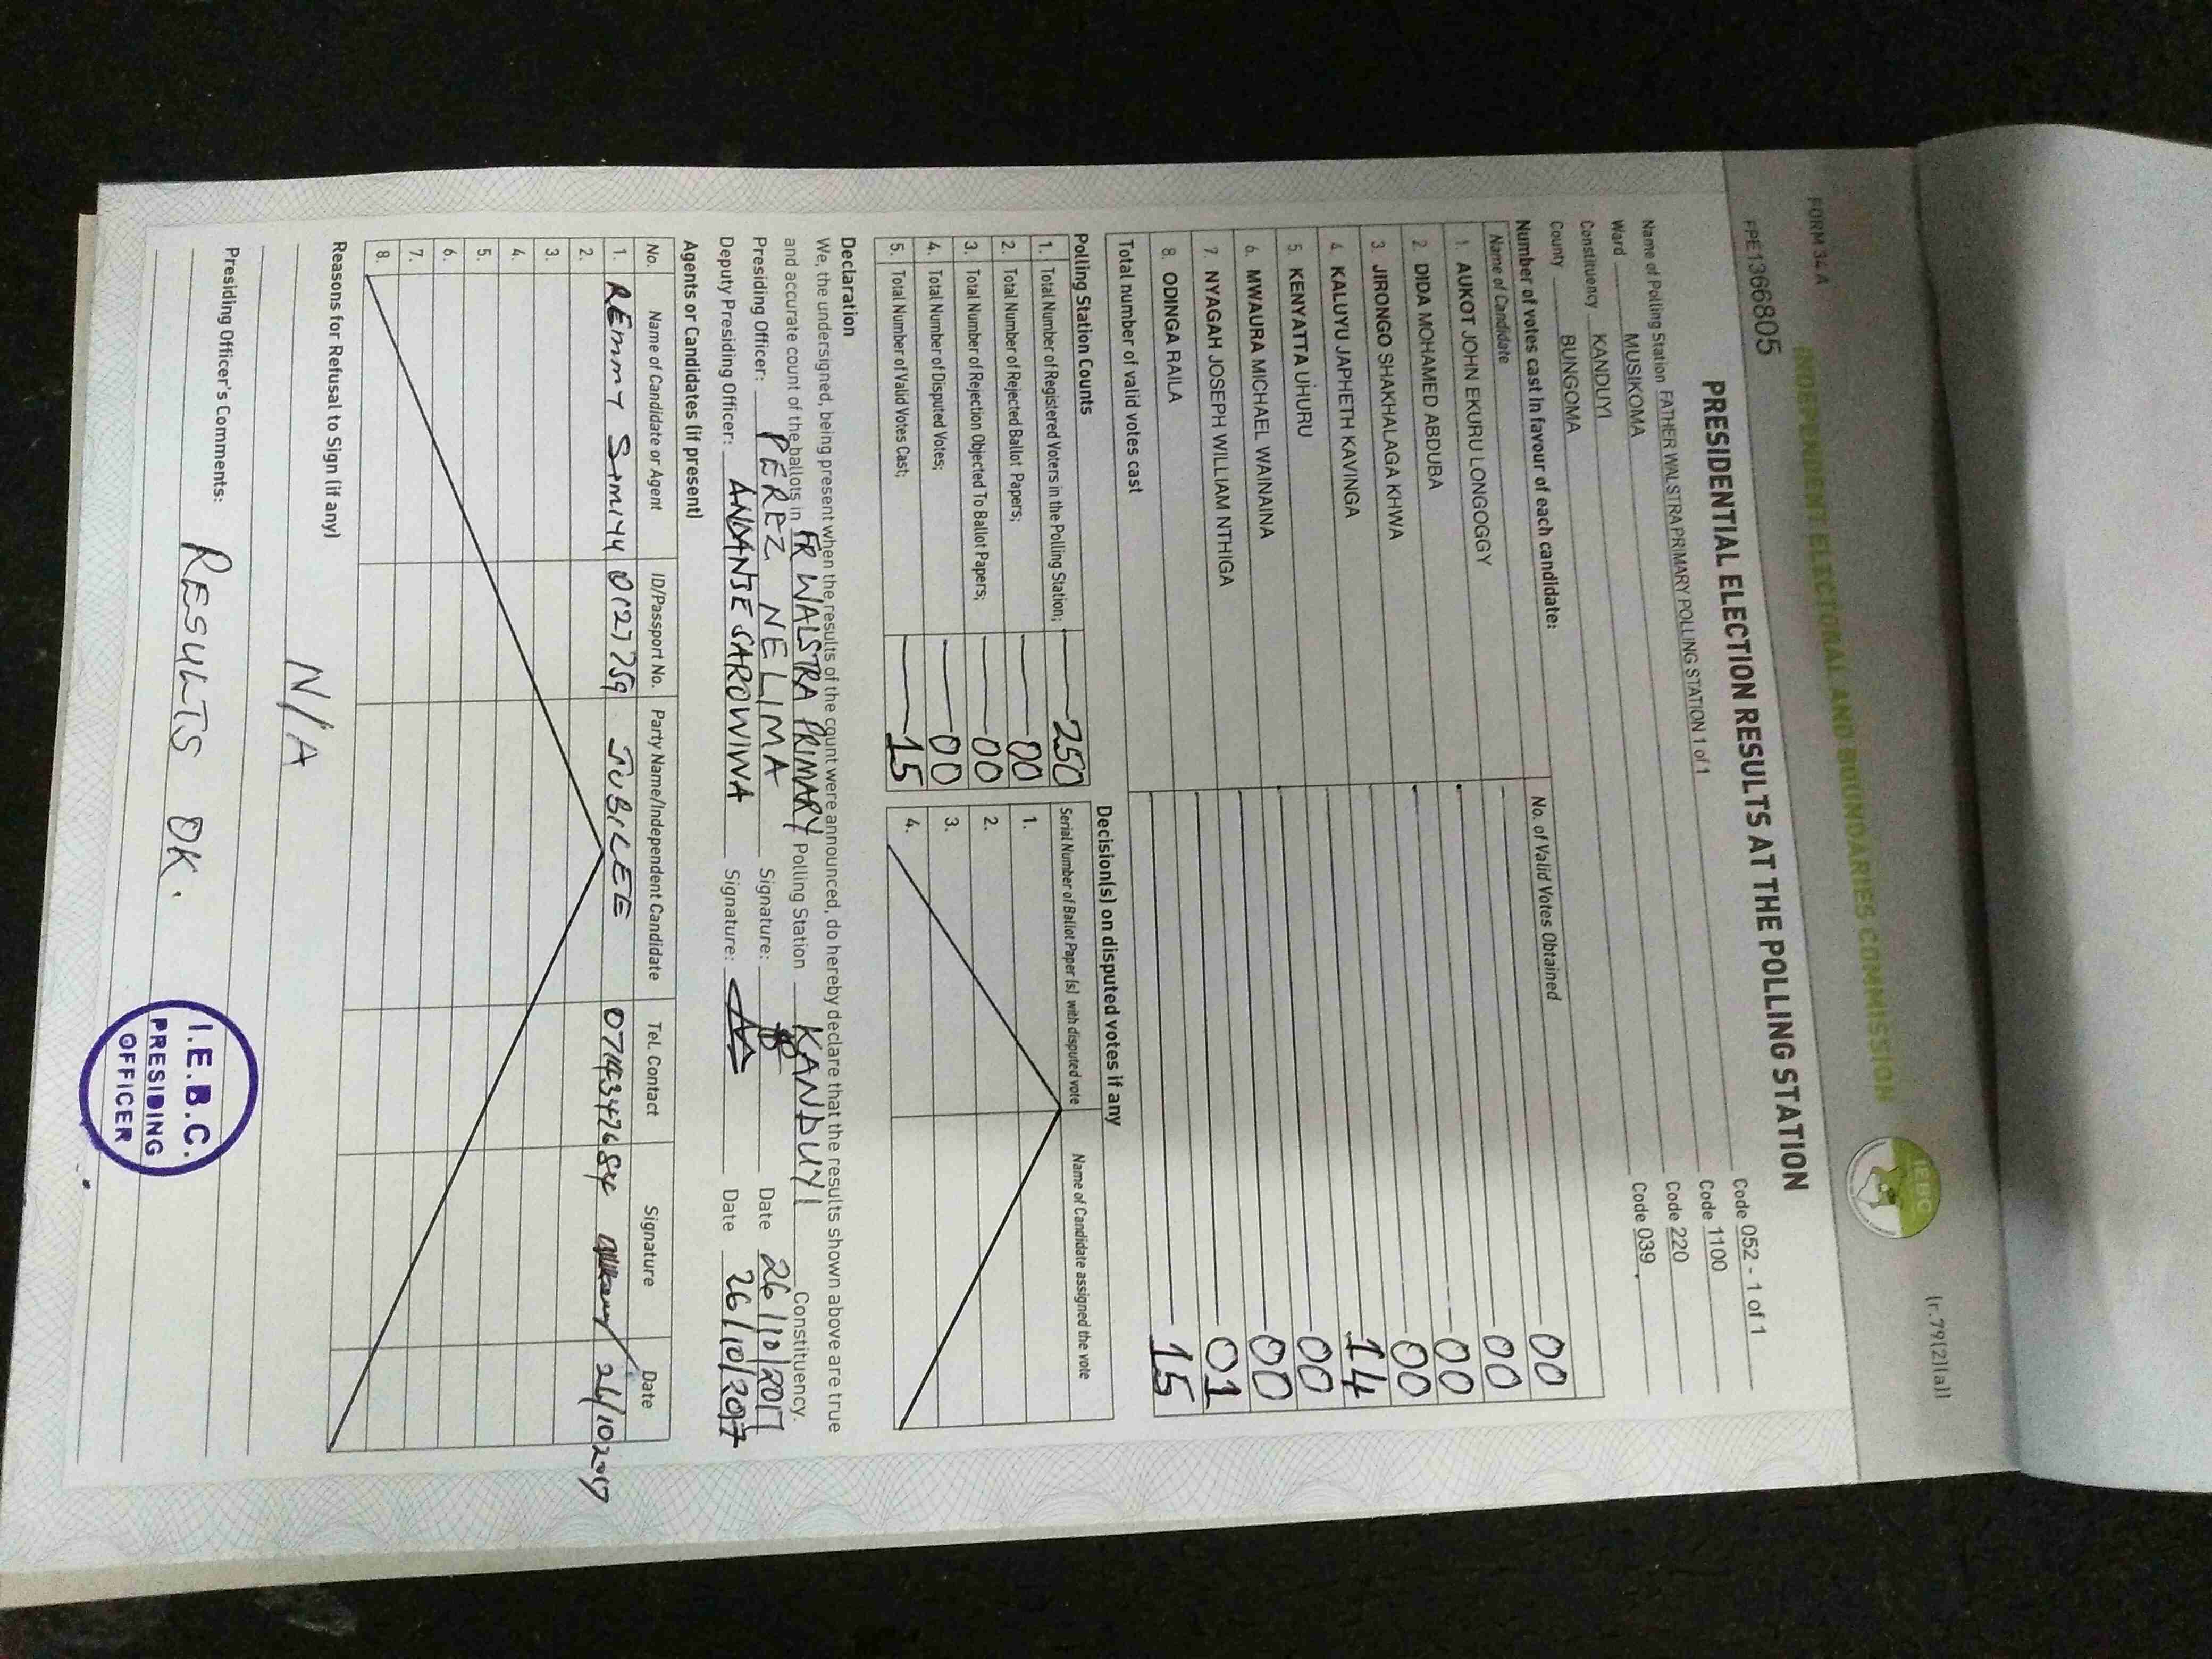 FORM 34 A
(r.79(2)(a))
INDEPENDENT ELECTORAL AND BOUNDARIES COMMISSION
IEBC
FPE1366805
PRESIDENTIAL ELECTION RESULTS AT THE POLLING STATION
Name of Polling Station FATHER WALSTRA PRIMARY POLLING STATION 1 of 1 Code 052 - 1 of 1
Ward MUSIKOMA Code 1100
Constituency KANDUYI Code 220
County BUNGOMA Code 039
Number of votes cast in favour of each candidate:
Name of Candidate No. of Valid Votes Obtained
1. AUKOT JOHN EKURU LONGOGGY 00
2. DIDA MOHAMED ABDUBA 00
3. JIRONGO SHAKHALAGA KHWA 00
4. KALUYU JAPHETH KAVINGA 00
5. KENYATTA UHURU 14
6. MWAURA MICHAEL WAINAINA 00
7. NYAGAH JOSEPH WILLIAM NTHIGA 00
8. ODINGA RAILA 01
Total number of valid votes cast 15
Polling Station Counts
1. Total Number of Registered Voters in the Polling Station; 250
2. Total Number of Rejected Ballot Papers; 00
3. Total Number of Rejection Objected To Ballot Papers; 00
4. Total Number of Disputed Votes; 00
5. Total Number of Valid Votes Cast; 15
Decision(s) on disputed votes if any
Serial Number of Ballot Paper (s) with disputed vote Name of Candidate assigned the vote
1.
2.
3.
4.
Declaration
We, the undersigned, being present when the results of the count were announced, do hereby declare that the results shown above are true
and accurate count of the ballots in FR WALSTRA PRIMARY Polling Station KANDUYI Constituency.
Presiding Officer: PEREZ NELIMA Signature: Date 26/10/2017
Deputy Presiding Officer: ANDANJE SAROWINA Signature: Date 26/10/2017
Agents or Candidates (if present)
No. Name of Candidate or Agent ID/Passport No. Party Name/Independent Candidate Tel. Contact Signature Date
1. JUBILEE 26/10/2017
2.
3.
4.
5.
6.
7.
8.
Reasons for Refusal to Sign (if any)
N/A
Presiding Officer's Comments: RESULTS OK.
I.E.B.C.
PRESIDING
OFFICER